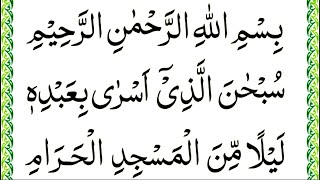 بِسْمِ اللهِ الرَّحْمٰنِ الرَّحِيْمِ
سُبْحٰنَ الَّذِیْۤ اَسْرٰی بِعَبْدِهٖ
لَيْلًا مِّنَ الْمَسْجِدِ الْحَرَامِ